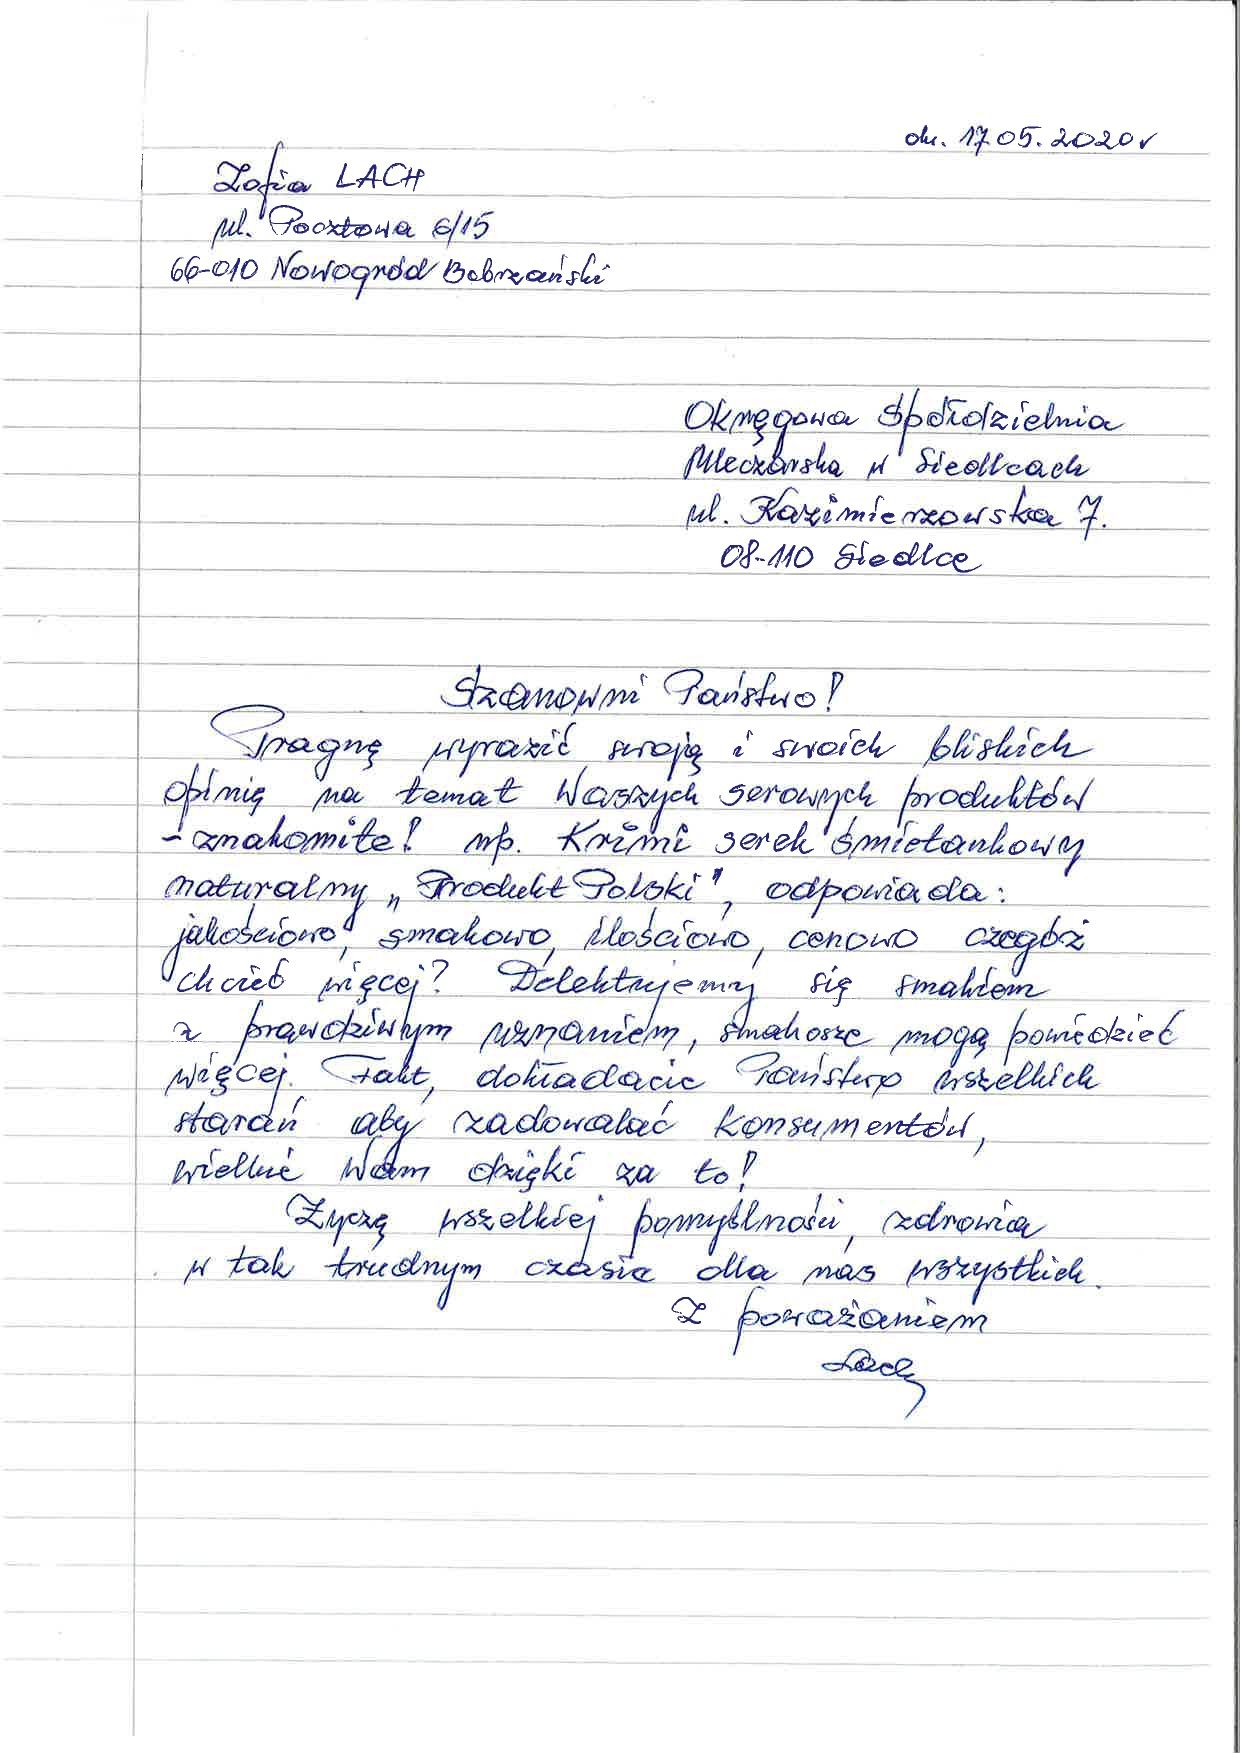 dn. 17.05.2020r
Zofia LACH
ul. Pocztowa 6/15
66-010 Nowogród Bobrzański
Okręgowa Spółdzielnia
Mleczarska w Siedlcach
ul. Kazimierzowska 7.
08-110 Siedlce
Szanowni Państwo!
Pragnę wyrazić swoją i swoich bliskich
opinię na temat Waszych serowych produktów
- znakomite! np. Krimi serek śmietankowy
naturalny „Produkt Polski", odpowiada:
jakościowo, smakowo, ilościowo, cenowo czegóż
chcieć więcej? Delektujemy się smakiem
z prawdziwym uznaniem, smakosze mogą powiedzieć
więcej. Fakt, dokładacie Państwo wszelkich
starań aby zadowalać konsumentów,
wielkie Wam dzięki za to!
Życzę wszelkiej pomyślności, zdrowia
w tak trudnym czasie dla nas wszystkich.
Z poważaniem
Lach